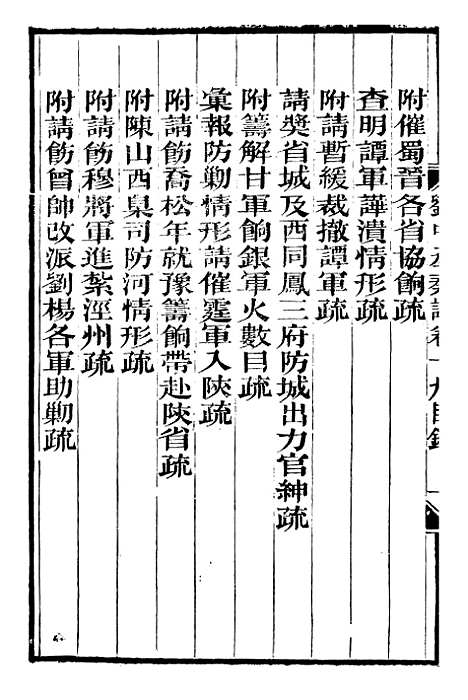 劉中丞奏議卷十九目錄
附催蜀晉各省協餉疏
查明譚軍譁潰情形疏
附請暫緩裁撤譚軍疏
請獎省城及西同鳳三府防城出力官紳疏
附籌解甘軍餉銀軍火數目疏
彙報防勦情形請催霆軍入陝疏
附請飭喬松年就豫籌餉帶赴陝省疏
附陳山西臬司防河情形疏
附請飭穆將軍進紮涇州疏
附請飭曾帥改派劉楊各軍助勦疏